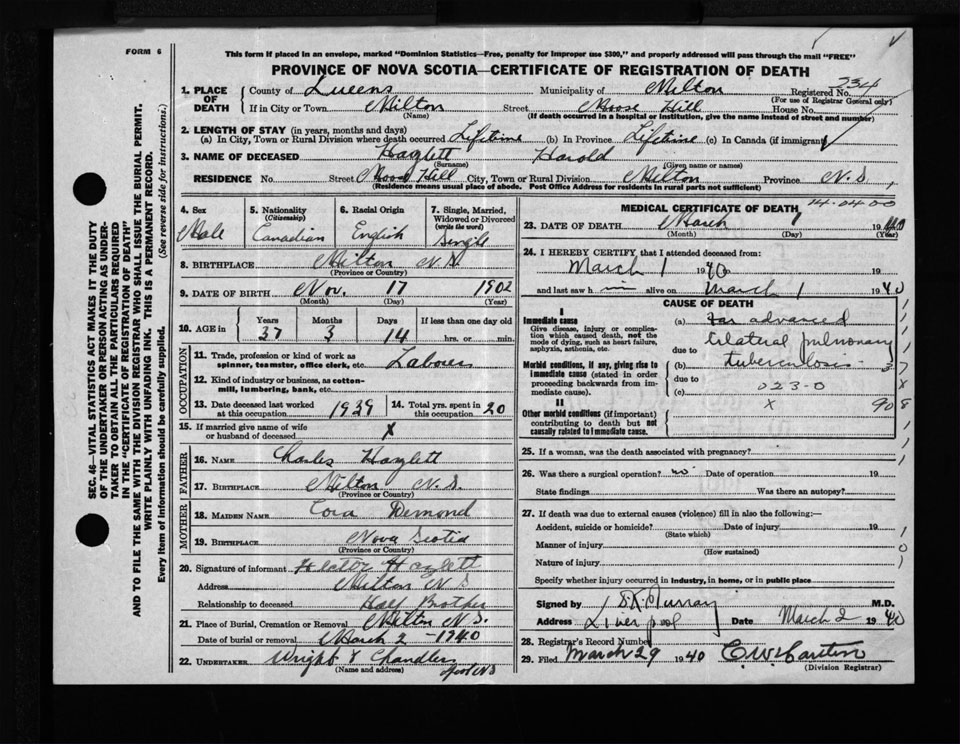 FORM 6
This form if placed in an envelope, marked "Dominion Statistics—Free, penalty for improper use $300," and properly addressed will pass through the mail "FREE"
PROVINCE OF NOVA SCOTIA—CERTIFICATE OF REGISTRATION OF DEATH
SEC. 46—VITAL STATISTICS ACT MAKES IT THE DUTY
OF THE UNDERTAKER OR PERSON ACTING AS UNDER-
TAKER TO OBTAIN ALL THE PARTICULARS REQUIRED
IN THE "CERTIFICATE OF REGISTRATION OF DEATH"
AND TO FILE THE SAME WITH THE DIVISION REGISTRAR WHO SHALL ISSUE THE BURIAL PERMIT.
WRITE PLAINLY WITH UNFADING INK. THIS IS A PERMANENT RECORD.
Every item of information should be carefully supplied. (See reverse side for instructions.)
1. PLACE OF DEATH
County of Queens Municipality of Milton Registered No. 334
(For use of Registrar General only)
If in City or Town Milton Street Moose Hill House No.
(Name) (If death occurred in a hospital or institution, give the name instead of street and number)
2. LENGTH OF STAY (in years, months and days)
(a) In City, Town or Rural Division where death occurred Lifetime (b) In Province Lifetime (c) In Canada (if immigrant)
3. NAME OF DECEASED Hazlett Harold
(Surname) (Given name or names)
RESIDENCE No. Street Moose Hill City, Town or Rural Division Milton Province N.S.
(Residence means usual place of abode. Post Office Address for residents in rural parts not sufficient)
4. Sex
Male
5. Nationality
(Citizenship)
Canadian
6. Racial Origin
English
7. Single, Married,
Widowed or Divorced
(write the word)
Single
8. BIRTHPLACE Milton N.S.
(Province or Country)
9. DATE OF BIRTH Nov. 17 1902
(Month) (Day) (Year)
10. AGE in
Years Months Days If less than one day old
37 3 14 hrs. or min.
OCCUPATION
11. Trade, profession or kind of work as
spinner, teamster, office clerk, etc. Laborer
12. Kind of industry or business, as cotton-
mill, lumbering, bank, etc.
13. Date deceased last worked
at this occupation 1939
14. Total yrs. spent in
this occupation 20
15. If married give name of wife
or husband of deceased X
FATHER
16. NAME Charles Hazlett
17. BIRTHPLACE Milton N.S.
(Province or Country)
MOTHER
18. MAIDEN NAME Cora Demond
19. BIRTHPLACE Nova Scotia
(Province or Country)
20. Signature of informant Hector Hazlett
Address Milton N S
Relationship to deceased Half Brother
21. Place of Burial, Cremation or Removal Milton N.S.
Date of burial or removal March 2 - 1940
22. UNDERTAKER Wright & Chandler
(Name and address)
MEDICAL CERTIFICATE OF DEATH
14-04-00
23. DATE OF DEATH March 1 1940
(Month) (Day) (Year)
24. I HEREBY CERTIFY, that I attended deceased from:
March 1 1940 19
and last saw h im alive on March 1 1940
CAUSE OF DEATH
I
Immediate cause
Give disease, injury or complica-
tion which caused death, not the
mode of dying, such as heart failure,
asphyxia, asthenia, etc.
(a) Far advanced
bilateral pulmonary
due to
tuberculosis
Morbid conditions, if any, giving rise to
immediate cause (stated in order
proceeding backwards from im-
mediate cause).
(b)
due to
023-0
(c)
II
Other morbid conditions (if important)
contributing to death but not
causally related to immediate cause.
X 90
25. If a woman, was the death associated with pregnancy?
26. Was there a surgical operation? no Date of operation 19
State findings Was there an autopsy?
27. If death was due to external causes (violence) fill in also the following:—
Accident, suicide or homicide? Date of injury 19
(State which)
Manner of injury
(How sustained)
Nature of injury
Specify whether injury occurred in industry, in home, or in public place
Signed by Murray M.D.
Address Liverpool Date March 2 1940
28. Registrar's Record Number
29. Filed March 29 1940
(Division Registrar)